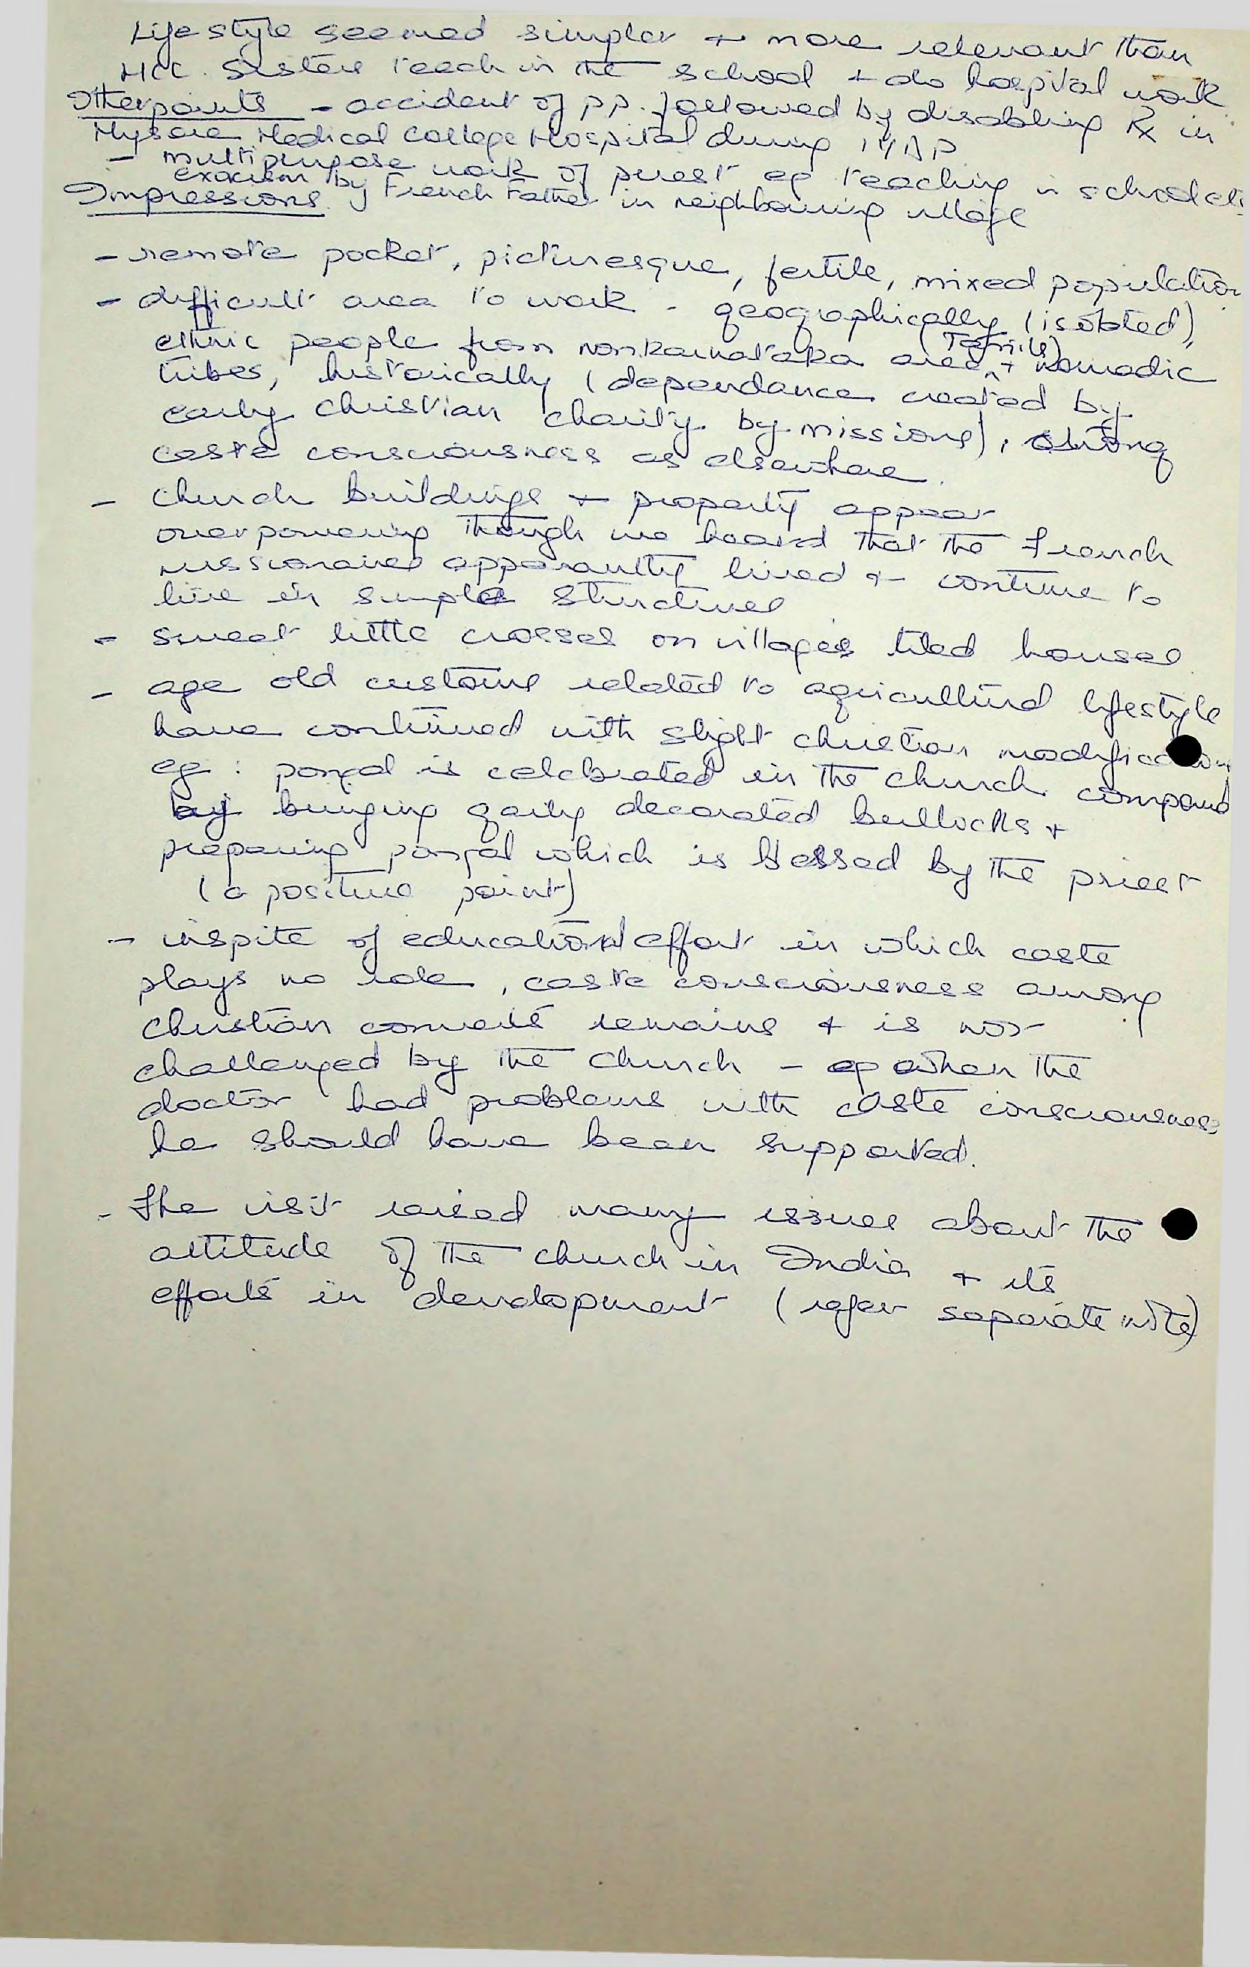 Lifestyle seemed simpler + more relevant than
HCC. Sisters teach in the school + do hospital work
Other points - accident of p.p. followed by disabling Rx in
Mysore Medical College Hospital during
- multipurpose work of priest eg teaching in school etc
exocism by French Father in neighbouring village
Impressions
- remote pocket, picturesque, fertile, mixed population
- difficult area to work - geographically (isolated),
ethnic people from nonkarnataka area (Tamils) + nomadic
tribes, historically (dependance created by
early christian charity by missions), strong
caste consciousness as elsewhere.
- church buildings + property appear
overpowering though we heard that the French
missionaries apparantly lived + continue to
live in simple structures
- sweet little crosses on villages tiled houses
- age old customs related to agricultural lifestyle
have continued with slight christian modification
eg: pongal is celebrated in the church compound
by bringing gaily decorated bullocks +
preparing pongal which is blessed by the priest
(a positive point)
- inspite of educational effort in which caste
plays no role, caste consciousness among
christian converts remains + is not
challenged by the church - eg when the
doctor had problems with caste consciousness
he should have been supported.
- The visit raised many issues about the
attitude of the church in India + its
efforts in development (refer separate note)